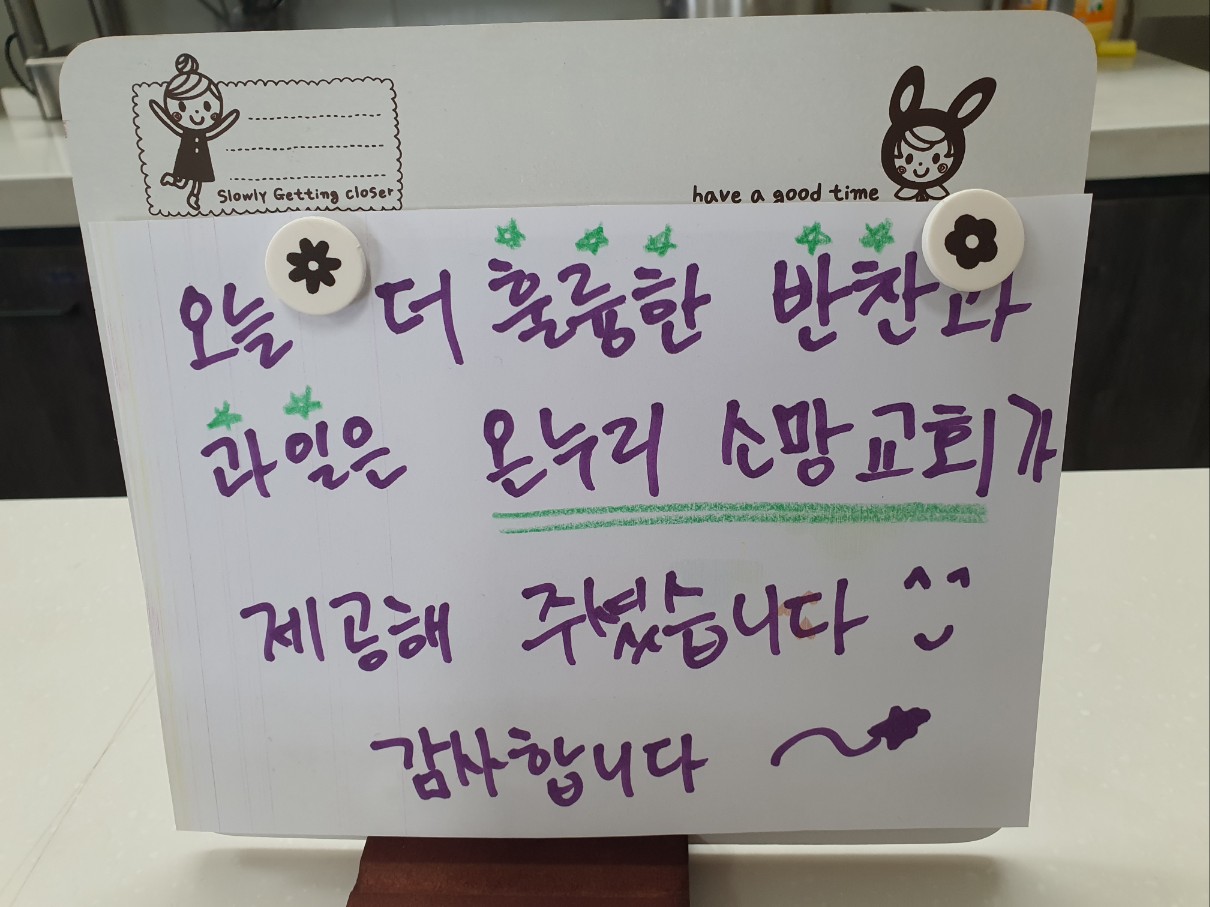 Slowly Getting closer
have a good time
오늘 더 훌륭한 반찬과
과일은 온누리 소망교회가
제공해 주셨습니다 ^^
감사합니다